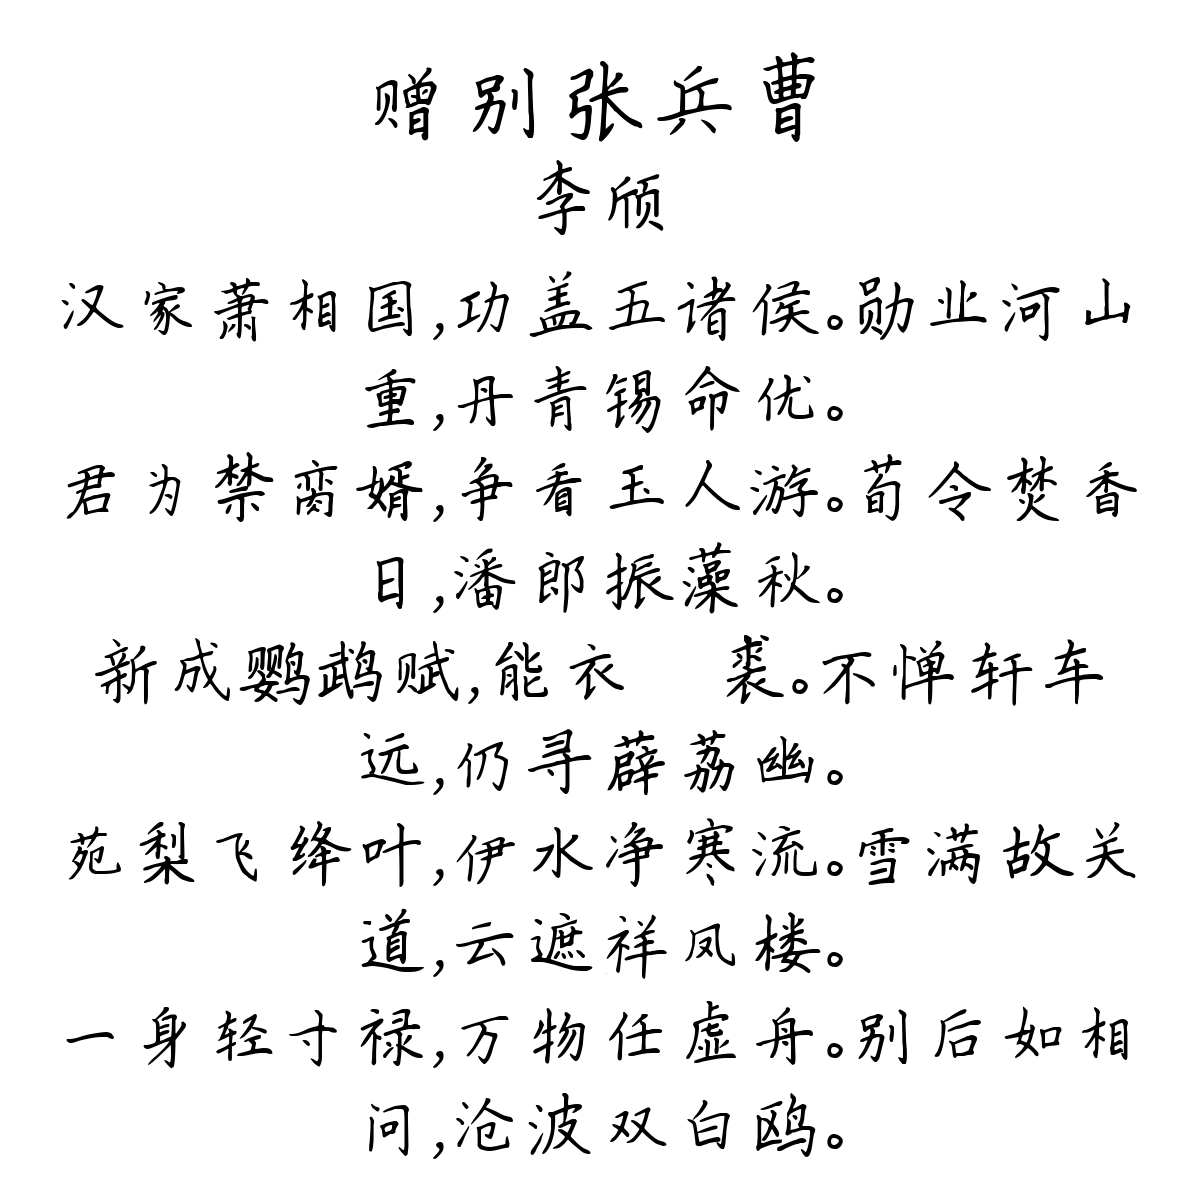 赠别张兵曹
李颀
汉家萧相国,功盖五诸侯。勋业河山
重,丹青锡命优。
君为禁脔婿,争看玉人游。荀令焚香
日,潘郎振藻秋。
新成鹦鹉赋,能衣 裘。不惮轩车
远,仍寻薜荔幽。
苑梨飞绛叶,伊水净寒流。雪满故关
道,云遮祥凤楼。
一身轻寸禄,万物任虚舟。别后如相
问,沧波双白鸥。